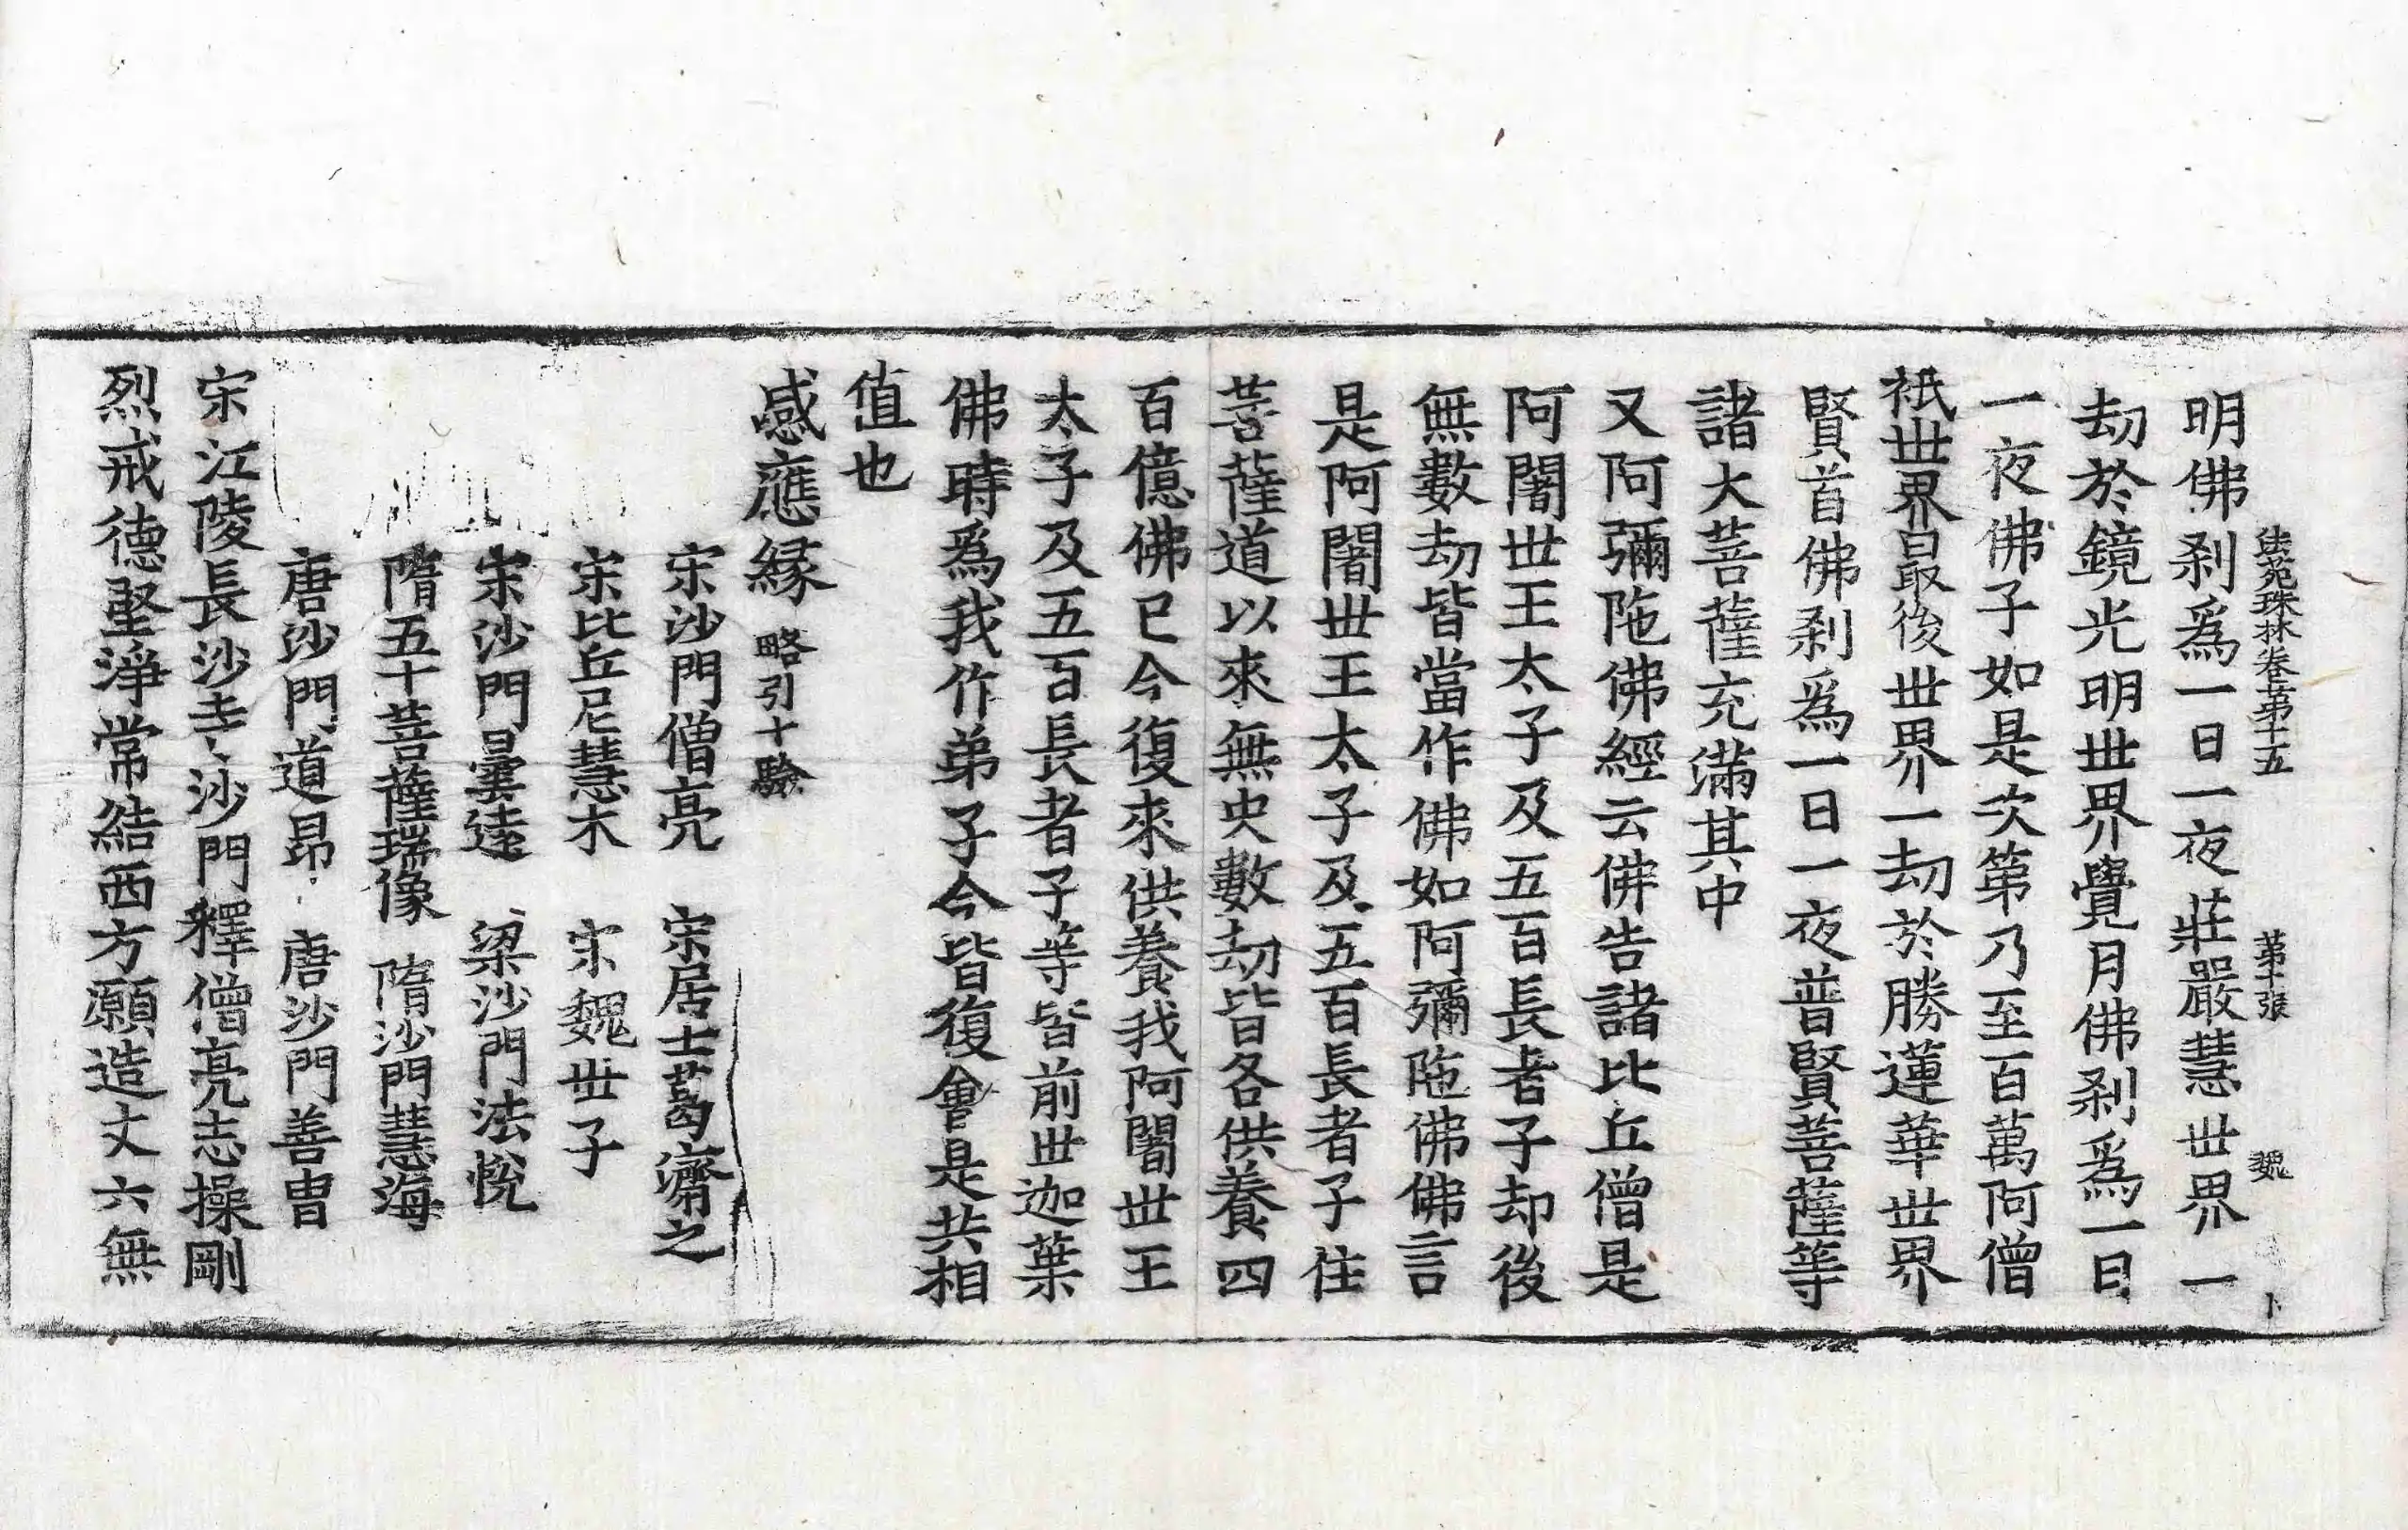 法苑珠林卷第十五 第十張 魏
明佛刹爲一日一夜莊嚴慧世界一
劫於鏡光明世界覺月佛刹爲一日
一夜佛子如是次第乃至百萬阿僧
祇世界最後世界一劫於勝蓮華世界
賢首佛刹爲一日一夜普賢菩薩等
諸大菩薩充滿其中
又阿彌陁佛經云佛告諸比丘僧是
阿闍世王太子及五百長者子却後
無數劫皆當作佛如阿彌陁佛佛言
是阿闍世王太子及五百長者子住
菩薩道以來無央數劫皆各供養四
百億佛已今復來供養我阿闍世王
太子及五百長者子等皆前世迦葉
佛時爲我作弟子今皆復會是共相
值也
感應縁 略引十驗
宋沙門僧亮 宋居士葛濟之
宋比丘尼慧木 宋魏世子
宋沙門曇遠 梁沙門法悅
隋五十菩薩瑞像 隋沙門慧海
唐沙門道昂 唐沙門善胄
宋江陵長沙寺沙門釋僧亮志操剛
烈戒德堅淨常結西方願造丈六無